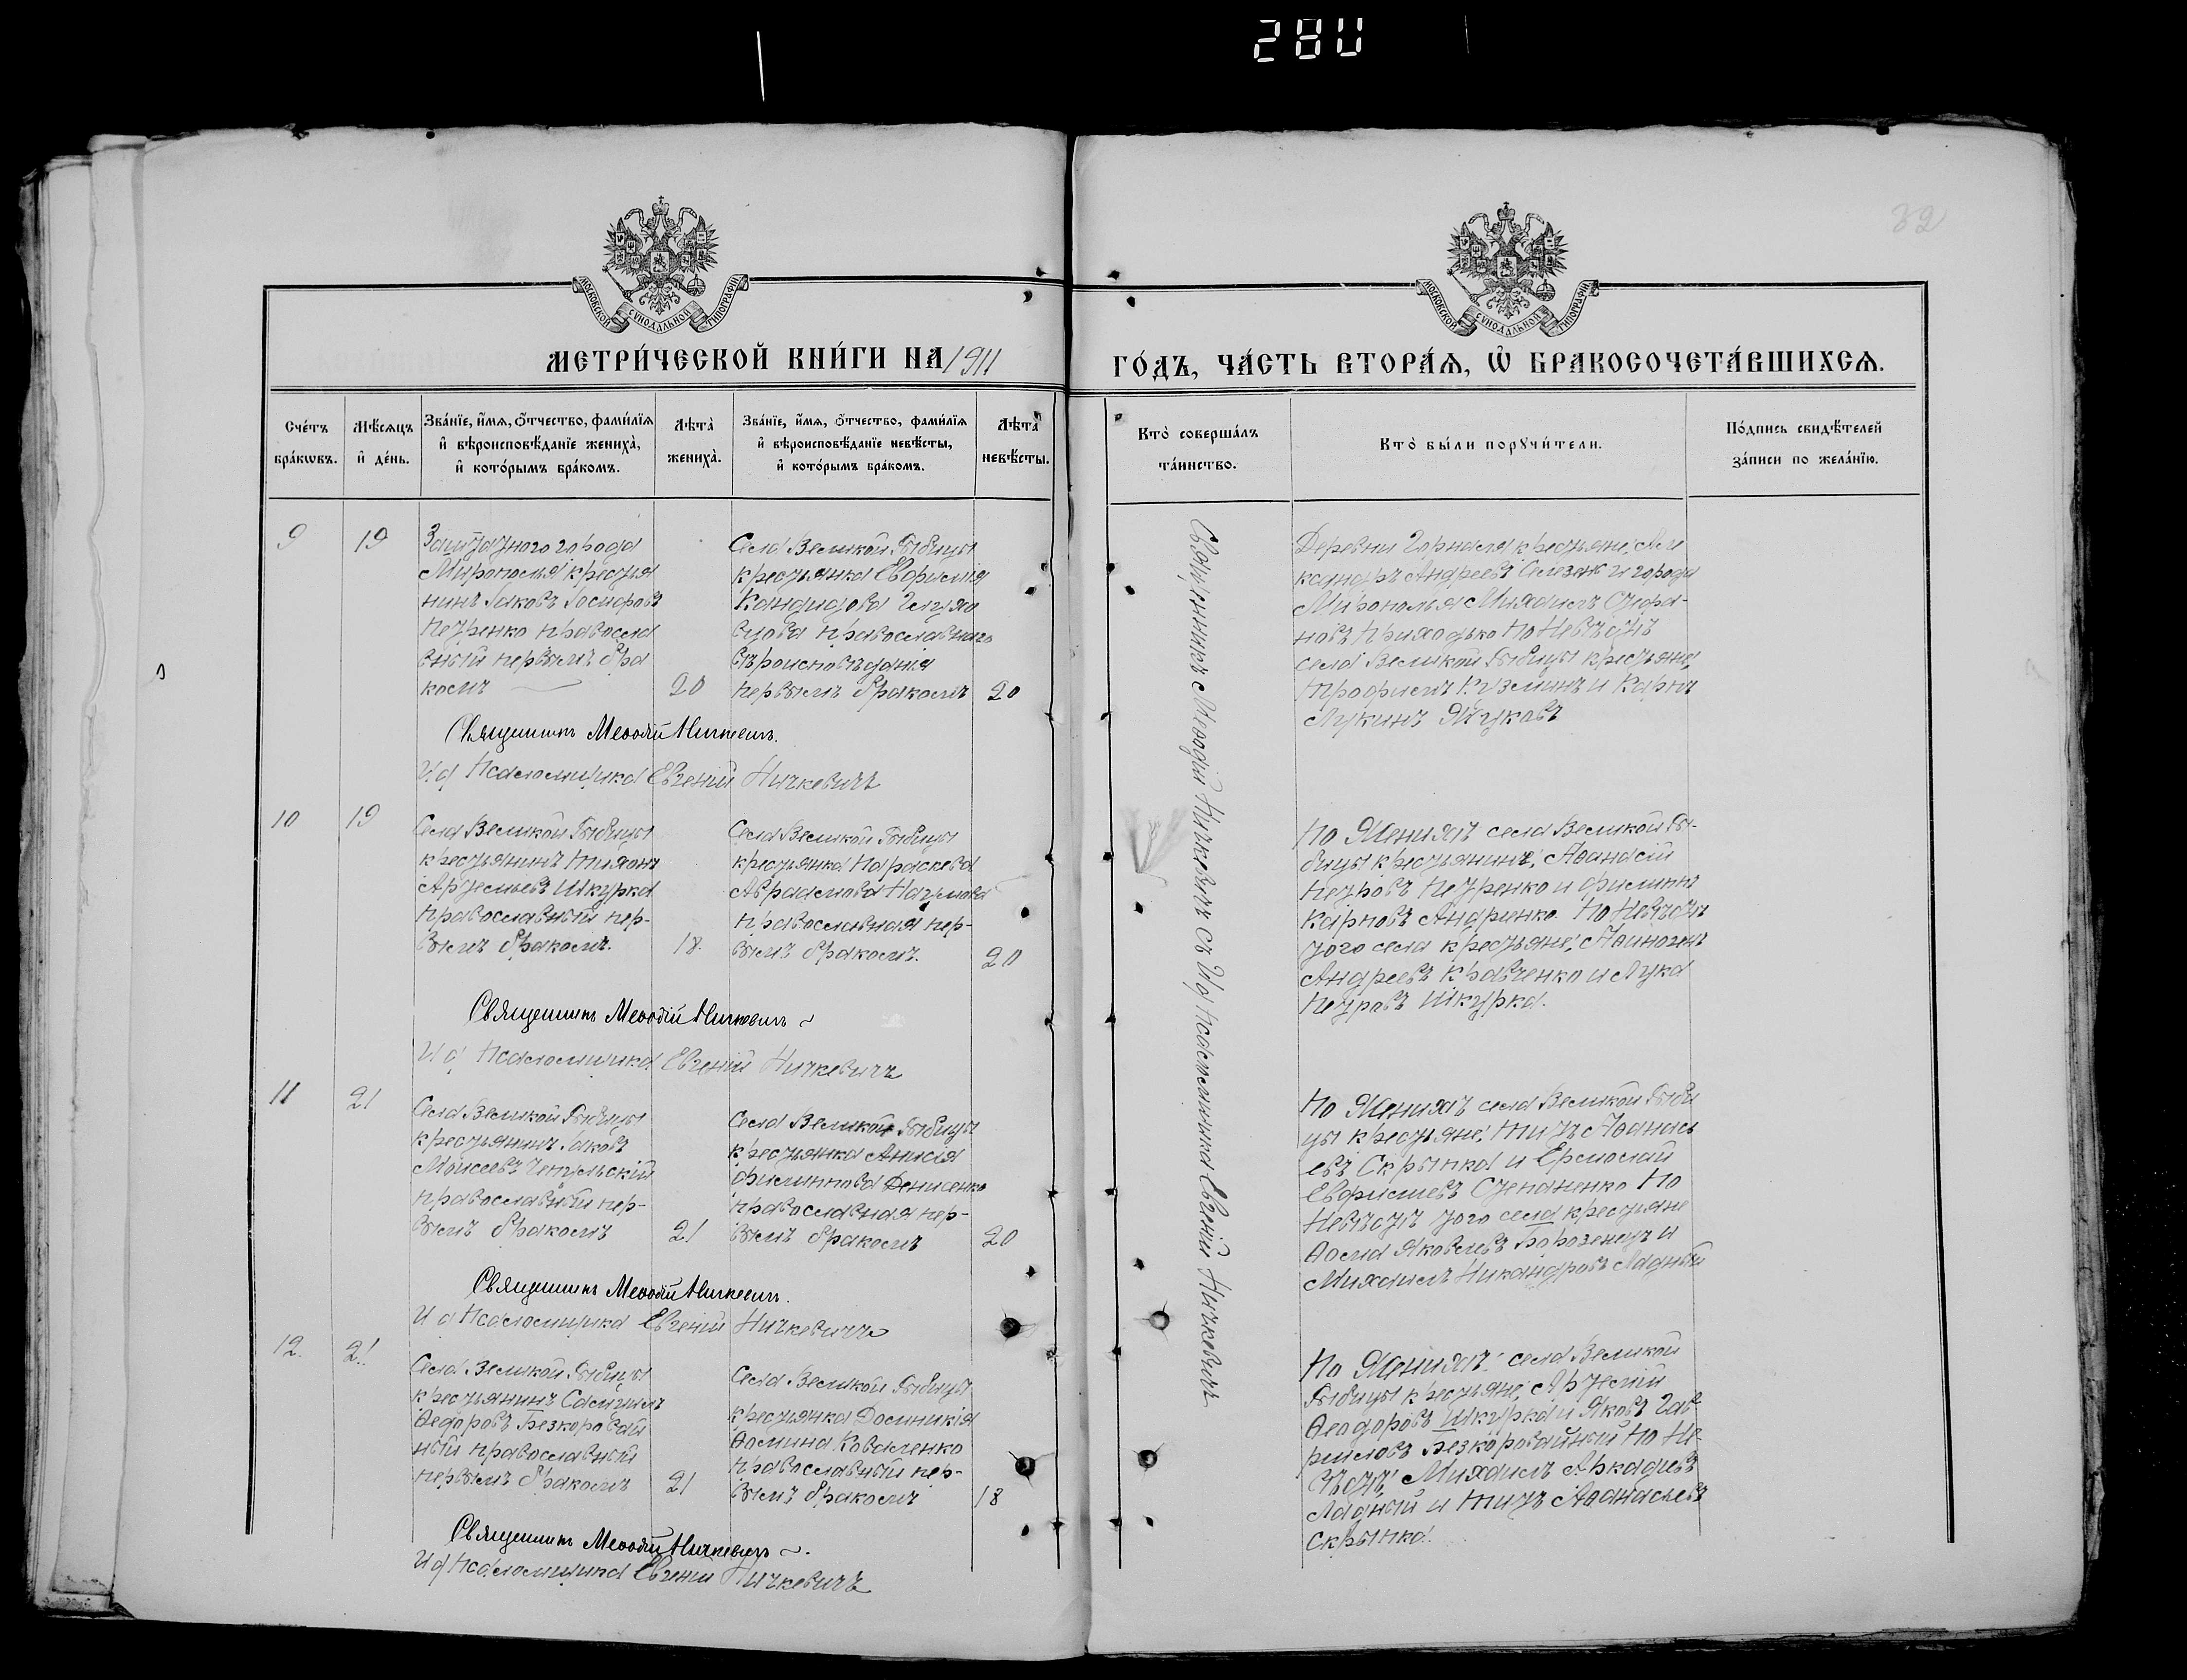 280
32
МОСКОВСКОЙ СѴНОДАЛЬНОЙ ТИПОГРАФІИ
МОСКОВСКОЙ СѴНОДАЛЬНОЙ ТИПОГРАФІИ
МЕТРИ́ЧЕСКОЙ КНИ́ГИ НА 1911
ГО́ДЪ, ЧА́СТЬ ВТОРА́Ѧ, Ѽ БРАКОСОЧЕТА́ВШИХСѦ.
Сче́тъ
бра́кѡвъ.
Мѣ́сѧцъ
и҆ де́нь.
Зва́нїе, и҆́мѧ, ѻ҆́тчество, фами́лїѧ
и҆ вѣроисповѣ́данїе жениха̀,
и҆ кото́рымъ бра́комъ.
Лѣта̀
жениха̀.
Зва́нїе, и҆́мѧ, ѻ҆́тчество, фами́лїѧ
и҆ вѣроисповѣ́данїе невѣ́сты,
и҆ кото́рымъ бра́комъ.
Лѣта̀
невѣ́сты.
Кто̀ соверша́лъ
та́инство.
Кто̀ бы́ли порꙋчи́тели.
По́дпись свидѣ́телей
за́писи по жела́нїю.
9
19
Заштатного города
Мирополья крестья
нинъ Іаковъ Іосифовъ
Петренко правосла
вный первымъ бра
комъ
20
Села Великой Рыбицы
крестьянка Евфимія
Кандидова
православнаго
вѣроисповѣданія
первымъ бракомъ
20
Деревни Горналя крестьяне, Але
ксандръ Андреевъ Селезнь и города
Мирополья Михаилъ Стефа-
новъ Приходько По Невѣстѣ
села Великой Рыбицы крестьяне,
Трофимъ Кузминъ и Карпъ
Лукинъ Жуковъ
Священникъ Меѳодій Ничкевичъ.
И. д Псаломщика Евгеній Ничкевичъ
Священникъ Меѳодій Ничкевичъ съ И/д Псаломщика Евгеній Ничкевичъ
10
19
Села Великой Рыбицы
крестьянинъ Тихонъ
Артемьевъ Шкурка
православный пер-
вымъ бракомъ.
18.
Села Великой Рыбицы
крестьянка Параскева
Авраамова Наумова
православная пер-
вымъ бракомъ.
20
По Женихѣ села Великой Ры-
бицы крестьянинъ, Аѳанасій
Петровъ Петренко и Филиппъ
Карповъ Андрienко. По Невѣстѣ
того села крестьяне, Аѳиногенъ
Андреевъ Кравченко и Лука
Петровъ Шкурка.
Священникъ Меѳодій Ничкевичъ
И. д Псаломщика Евгеній Ничкевичъ
11
21
Села Великой Рыбицы
крестьянинъ Іаковъ
Моисеевъ Чепульскій
православный пер-
вымъ бракомъ
21
Села Великой Рыбицы
крестьянка Анисія
Филиппова Денисенко
православная пер-
вымъ бракомъ
20
По Женихѣ села Великой Рыби
цы крестьяне, Титъ Аѳанась
евъ Скрыпка и Ермолай
Евфимiевъ Степаненко По
Невѣстѣ того села крестьяне
Ѳома Яковлевъ Борозенецъ и
Михаилъ Никандровъ Ладный
Священникъ Меѳодій Ничкевичъ.
И д Псаломщика Евгеній Ничкевичъ
12.
21.
Села Великой Рыбицы
крестьянинъ Самуилъ
Ѳедоровъ Безкоровай
ный православный
первымъ бракомъ
21
Села Великой Рыбицы
крестьянка Домникія
Ѳомина Коваленко
православный пер-
вымъ бракомъ
18
По Женихѣ: села Великой
Рыбицы крестьяне, Артемій
Ѳеодоровъ Шкурка и Яковъ Гав-
риловъ Безкоровайный По Не-
вѣстѣ, Михаилъ Аркадiевъ
Ладный и Титъ Аѳанасьевъ
Скрыпка.
Священникъ Меѳодій Ничкевичъ.
И д Псаломщика Евгеній Ничкевичъ